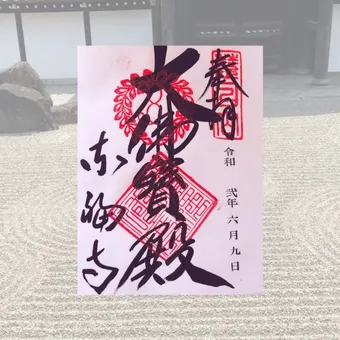 奉拝
令和 弐年 六月九日
大佛寳殿
東福寺